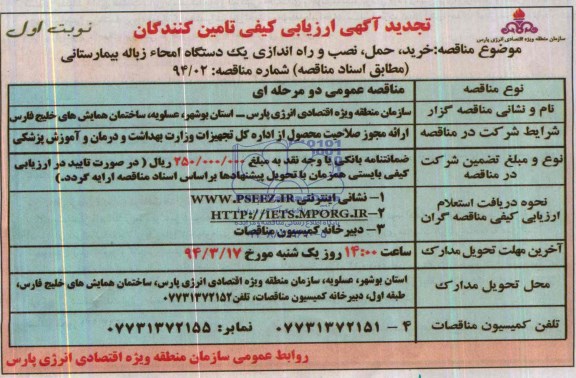 تجدید آگهی ارزیابی کیفی تامین کنندگان
نوبت اول
سازمان منطقه ویژه اقتصادی انرژی پارس
موضوع مناقصه:خرید، حمل، نصب و راه اندازی یک دستگاه امحاء زباله بیمارستانی
(مطابق اسناد مناقصه) شماره مناقصه: ۹۴/۰۲
نوع مناقصه
مناقصه عمومی دو مرحله ای
نام و نشانی مناقصه گزار
سازمان منطقه ویژه اقتصادی انرژی پارس – استان بوشهر، عسلویه، ساختمان همایش های خلیج فارس
شرایط شرکت در مناقصه
ارائه مجوز صلاحیت محصول از اداره کل تجهیزات وزارت بهداشت و درمان و آموزش پزشکی
نوع و مبلغ تضمین شرکت
در مناقصه
ضمانتنامه بانکی یا وجه نقد به مبلغ ۲۵۰/۰۰۰/۰۰۰ ریال ( در صورت تایید در ارزیابی
کیفی بایستی همزمان با تحویل پیشنهادها براساس اسناد مناقصه ارایه گردد.)
نحوه دریافت استعلام
ارزیابی کیفی مناقصه گران
۱– نشانی اینترنتی WWW.PSEEZ.IR
۲–HTTP://IETS.MPORG.IR
۳– دبیرخانه کمیسیون مناقصات
آخرین مهلت تحویل مدارک
ساعت ۱۴:۰۰ روز یک شنبه مورخ ۹۴/۳/۱۷
محل تحویل مدارک
استان بوشهر، عسلویه، سازمان منطقه ویژه اقتصادی انرژی پارس، ساختمان همایش های خلیج فارس،
طبقه اول، دبیرخانه کمیسیون مناقصات، تلفن۰۷۷۳۱۳۷۲۱۵۲
تلفن کمیسیون مناقصات
۴ – ۰۷۷۳۱۳۷۲۱۵۱ نمابر: ۰۷۷۳۱۳۷۲۱۵۵
روابط عمومی سازمان منطقه ویژه اقتصادی انرژی پارس